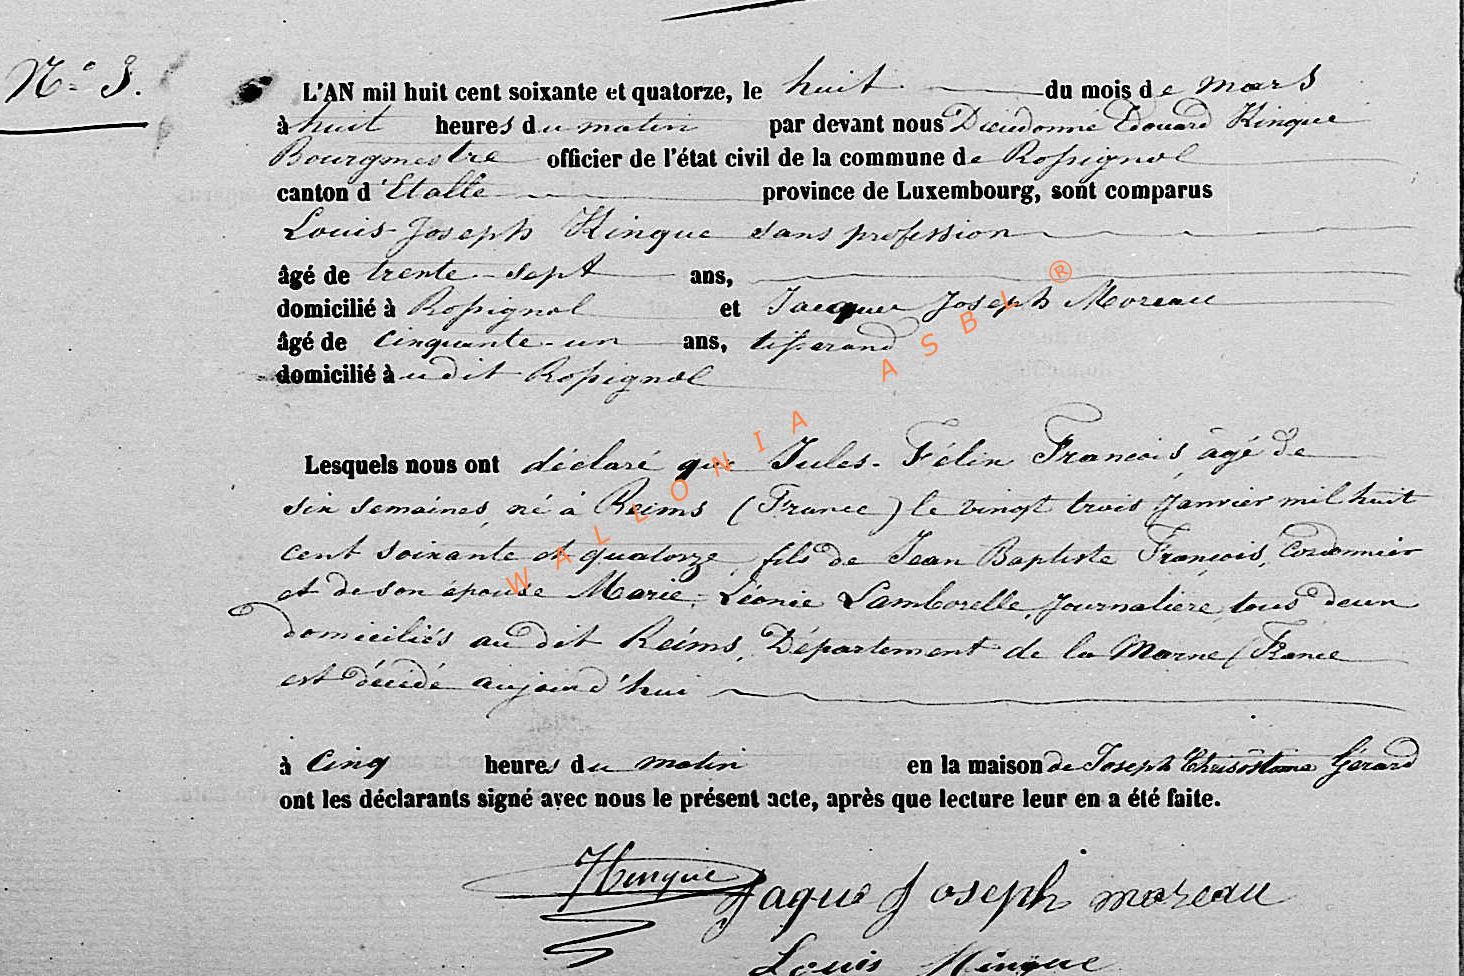 N° 3.
L'AN mil huit cent soixante et quatorze, le huit du mois de mars
à huit heures du matin par devant nous Dieudonné Edouard Hinque
Bourgmestre officier de l'état civil de la commune de Rossignol
canton d'Etalle province de Luxembourg, sont comparus
Louis-Joseph Hinque sans profession
âgé de trente-sept ans,
domicilié à Rossignol et Jacques Joseph Moreau
âgé de cinquante-un ans, tisserand
domicilié à udit Rossignol
Lesquels nous ont déclaré que Jules-Félix François, âgé de
six semaines, né à Reims (France) le vingt trois Janvier mil huit
cent soixante et quatorze, fils de Jean Baptiste François, Cordonnier
et de son épouse Marie-Léonie Lamborelle, Journalière, tous deux
domiciliés au dit Reims, Département de la Marne (France
est décédé aujourd'hui
à cinq heures du matin en la maison de Joseph Chrisostome Gérard
ont les déclarants signé avec nous le présent acte, après que lecture leur en a été faite.
Hinque
Jaque Joseph moreau
Louis Hinque
WALLONIA ASBL ®